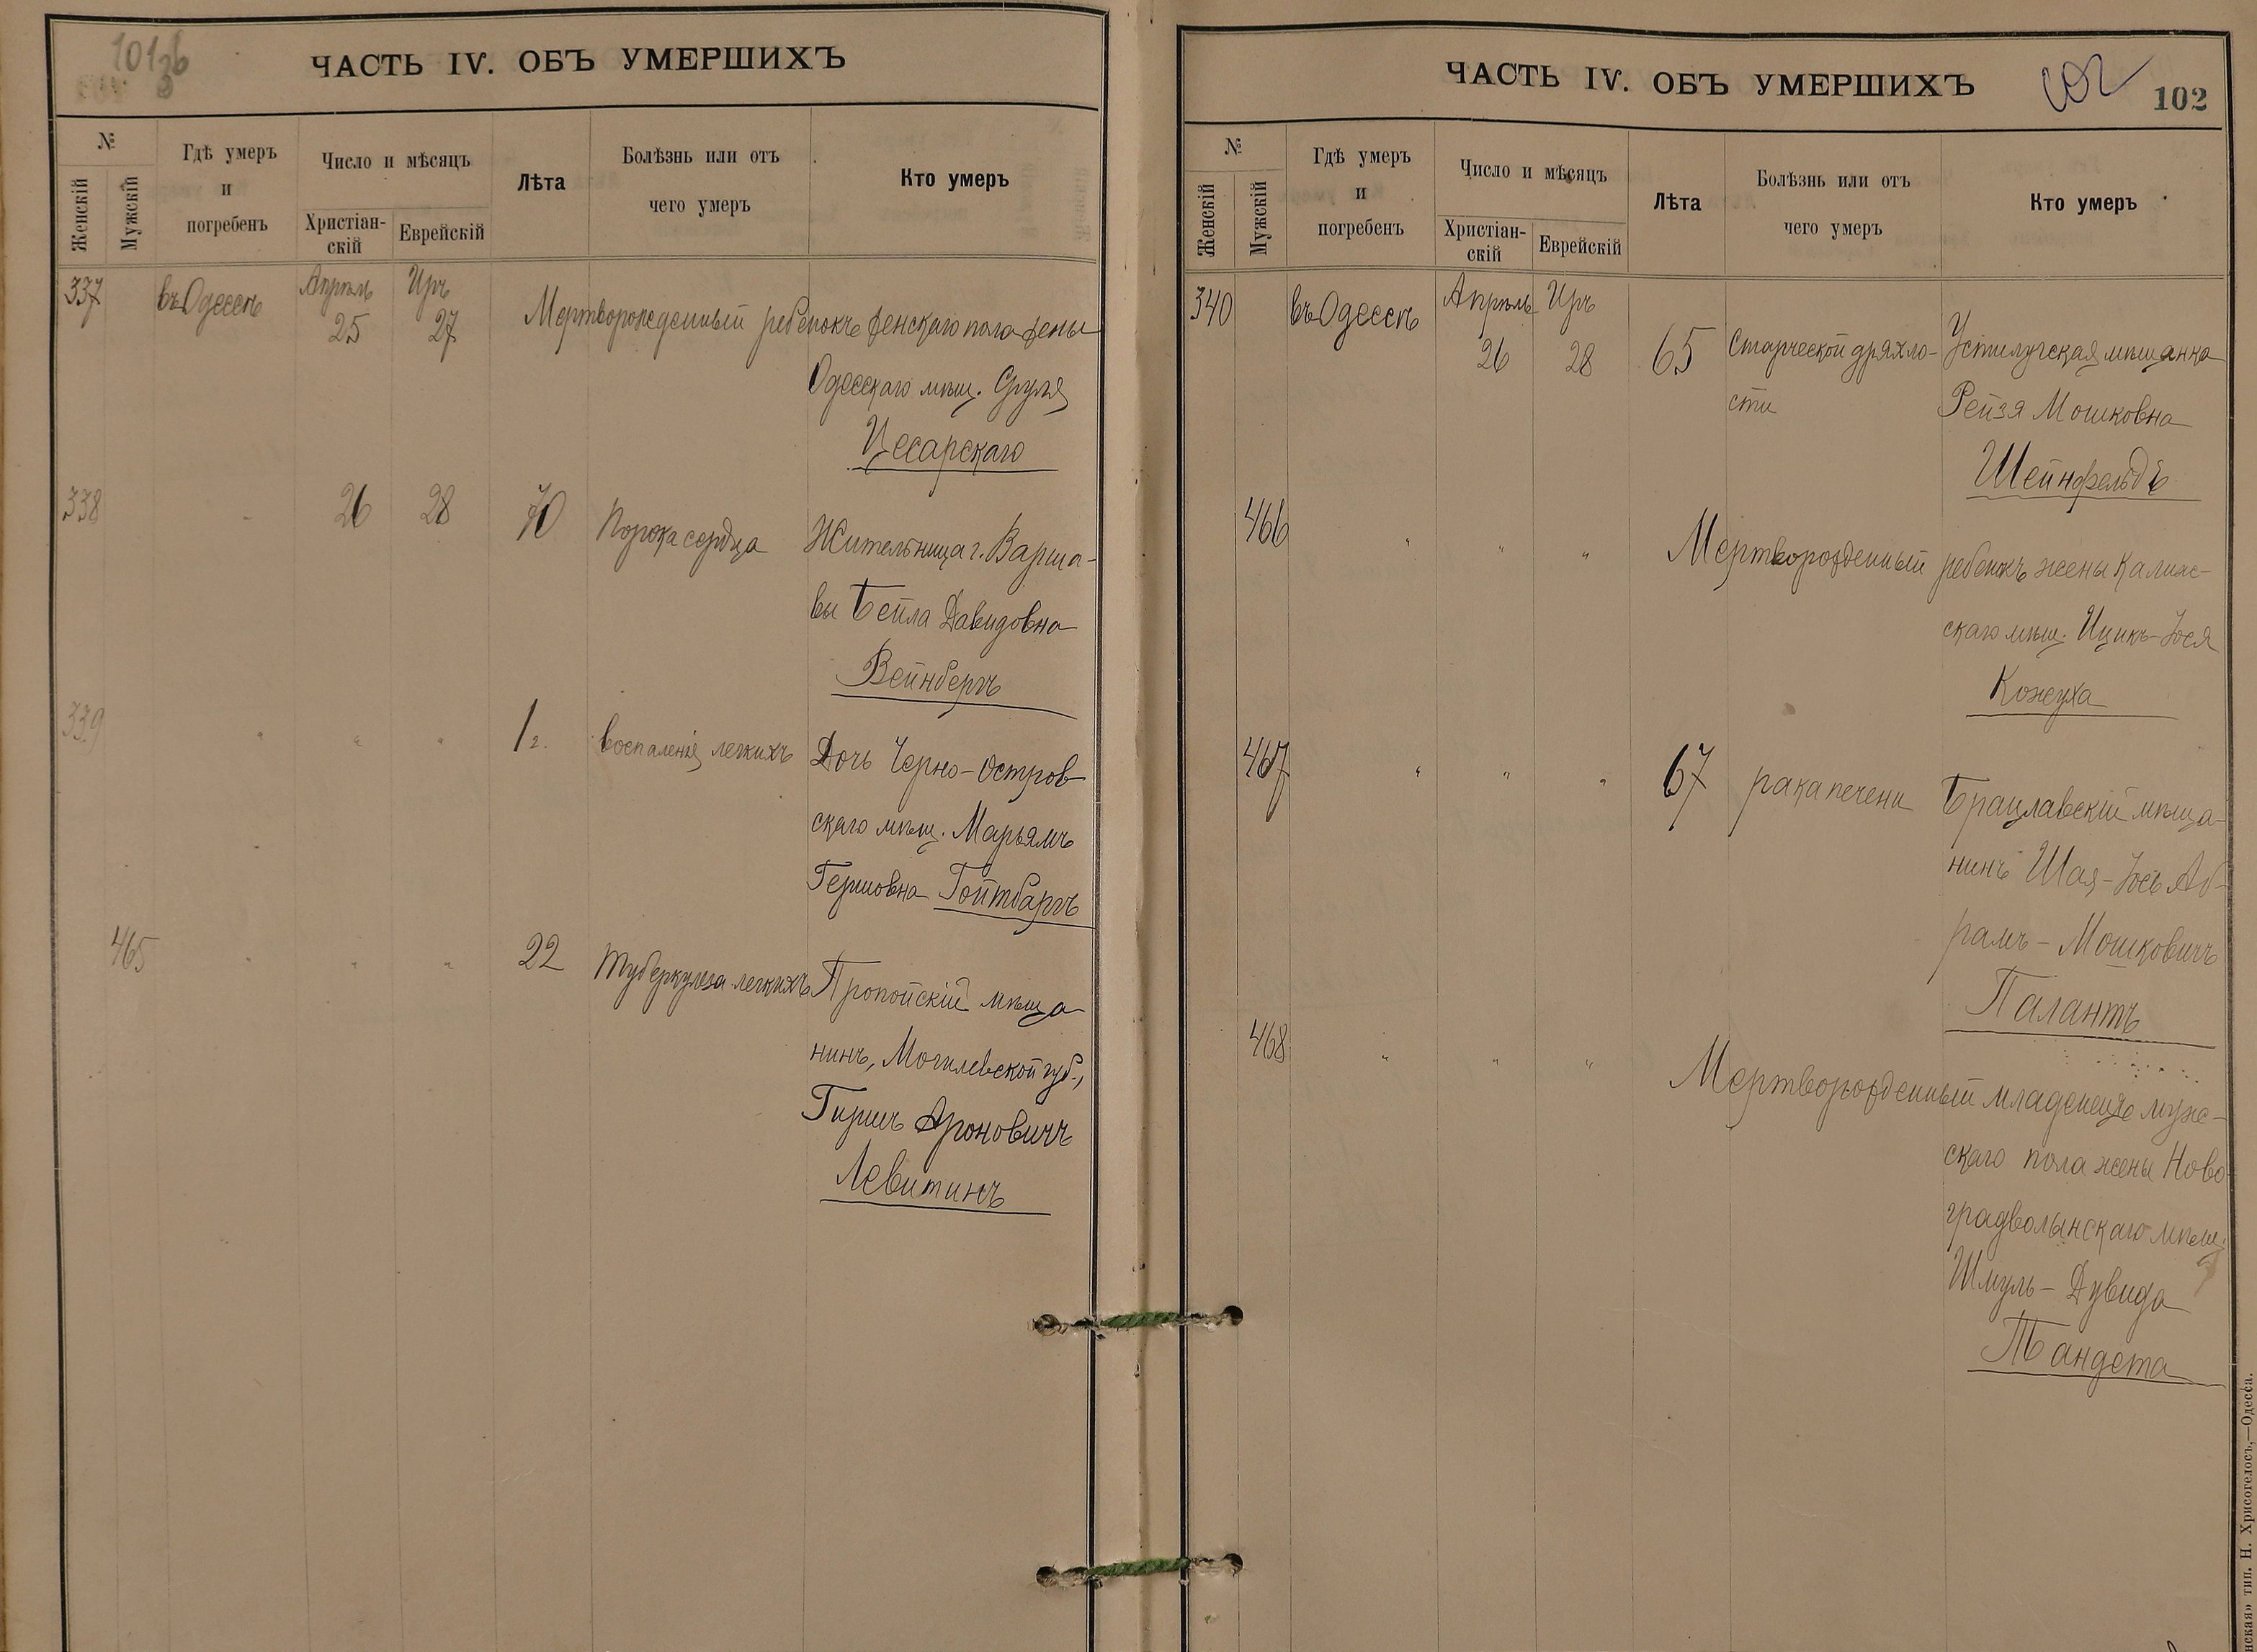 101об
ЧАСТЬ IV. ОБЪ УМЕРШИХЪ
№
Женскій
Мужскій
Гдѣ умеръ
и
погребенъ
Число и мѣсяцъ
Христіан-
скій
Еврейскій
Лѣта
Болѣзнь или отъ
чего умеръ
Кто умеръ
337 въ Одессѣ Апрѣль Иръ
25 27 Мертворожденный ребенокъ женскаго пола жены
Одесскаго мѣщ. Сруля
Цесарскаго
338 26 28 70 Порока сердца Жительница г. Варша-
вы Бейла Давидовна
Вейнбергъ
339 " " " 1 г. воспаленія легкихъ Дочь Черно-Остров-
скаго мѣщ. Марьямъ
Гершовна Гойтбаргъ
465 " " " 22 туберкулеза легкихъ Пропойскій мѣща-
нинъ, Могилевской губ.,
Гиршъ Ароновичъ
Левитинъ
ЧАСТЬ IV. ОБЪ УМЕРШИХЪ
102
102
№
Женскій
Мужскій
Гдѣ умеръ
и
погребенъ
Число и мѣсяцъ
Христіан-
скій
Еврейскій
Лѣта
Болѣзнь или отъ
чего умеръ
Кто умеръ
340 въ Одессѣ Апрѣль Иръ
26 28 65 Старческой дряхло- Устилугская мѣщанка
сти Рейзя Мошковна
Шейнфельдъ
466 " " " Мертворожденный ребенокъ жены Калиж-
скаго мѣщ. Ицикъ-Іося
Кожуха
467 " " " 67 рака печени Брацлавскій мѣща-
нинъ Шая-Іось Аб-
рамъ-Мошковичъ
Палантъ
468 " " " Мертворожденный младенецъ муж-
скаго пола жены Ново-
градволынскаго мѣщ.
Шмуль-Дувида
Тандета
тип. Н. Хрисогелосъ,—Одесса.